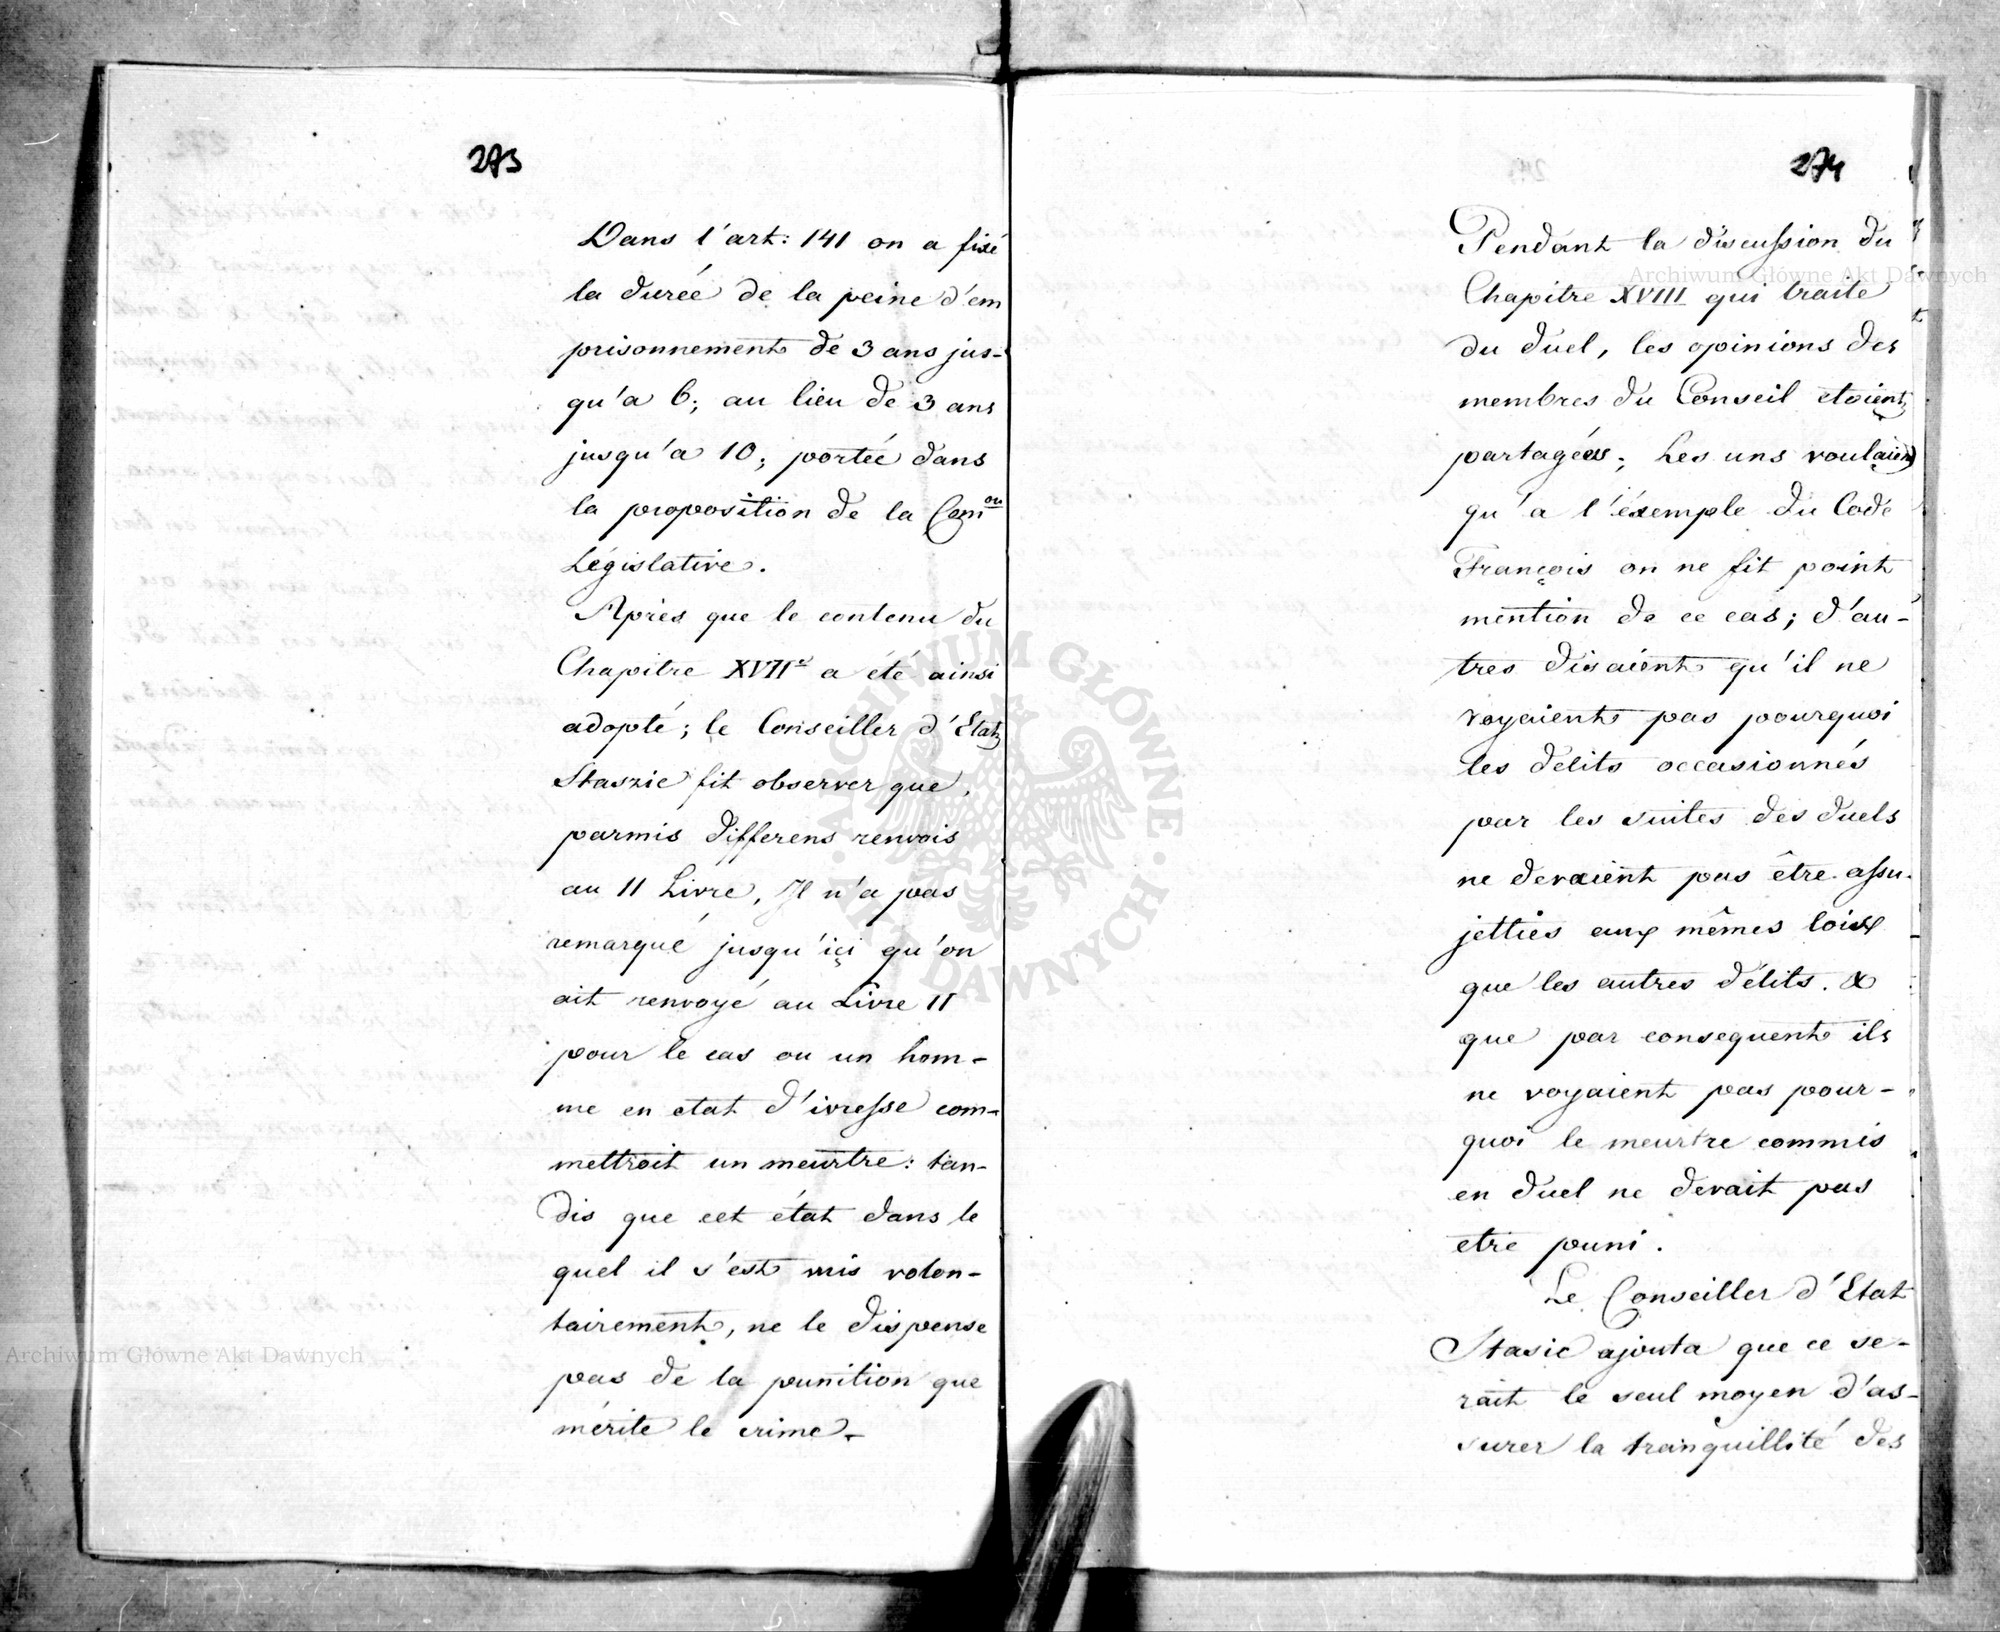 273
Dans l'art: 141 on a fixé
la dureé de la peine d'em
prisonnement de 3 ans jus-
qu'a 6; au lieu de 3 ans
jusqu'a 10; porteé dans
la proposition de la Com.on
Législative.
Après que le contenu du
Chapitre XVIIe a été ainsi
adopté; le Conseiller d'Etat
Staszic fit observer que,
parmis differens renvois
au II Livre, Il n'a pas
remarqué jusqu'içi qu'on
ait renvoyé au Livre II
pour le cas ou un hom-
me en etat d'ivresse com-
mettroit un meurtre: tan-
dis que cet état dans le
quel il s'est mis volon-
tairement, ne le dispense
pas de la punition que
mérite le crime.
274
Pendant la discussion du
Chapitre XVIII qui traite
du duel, les opinions des
membres du Conseil etoient
partagées; Les uns voulaient
qu'a l'éxemple du Code
François on ne fit point
mention de ce cas; d'au-
tres disaient qu'il ne
voyaient pas pourquoi
les délits occasionnés
par les suites des duels
ne devaient pas être assu-
jetties aux mêmes loix
que les autres délits. &
que par consequent ils
ne voyaient pas pour-
quoi le meurtre commis
en duel ne devait pas
etre puni.
Le Conseiller d'Etat
Stasic ajouta que ce se-
rait le seul moyen d'as-
surer la tranquillité des
Archiwum Główne Akt Dawnych
Archiwum Główne Akt Dawnych
ARCHIWUM GŁÓWNE AKT DAWNYCH